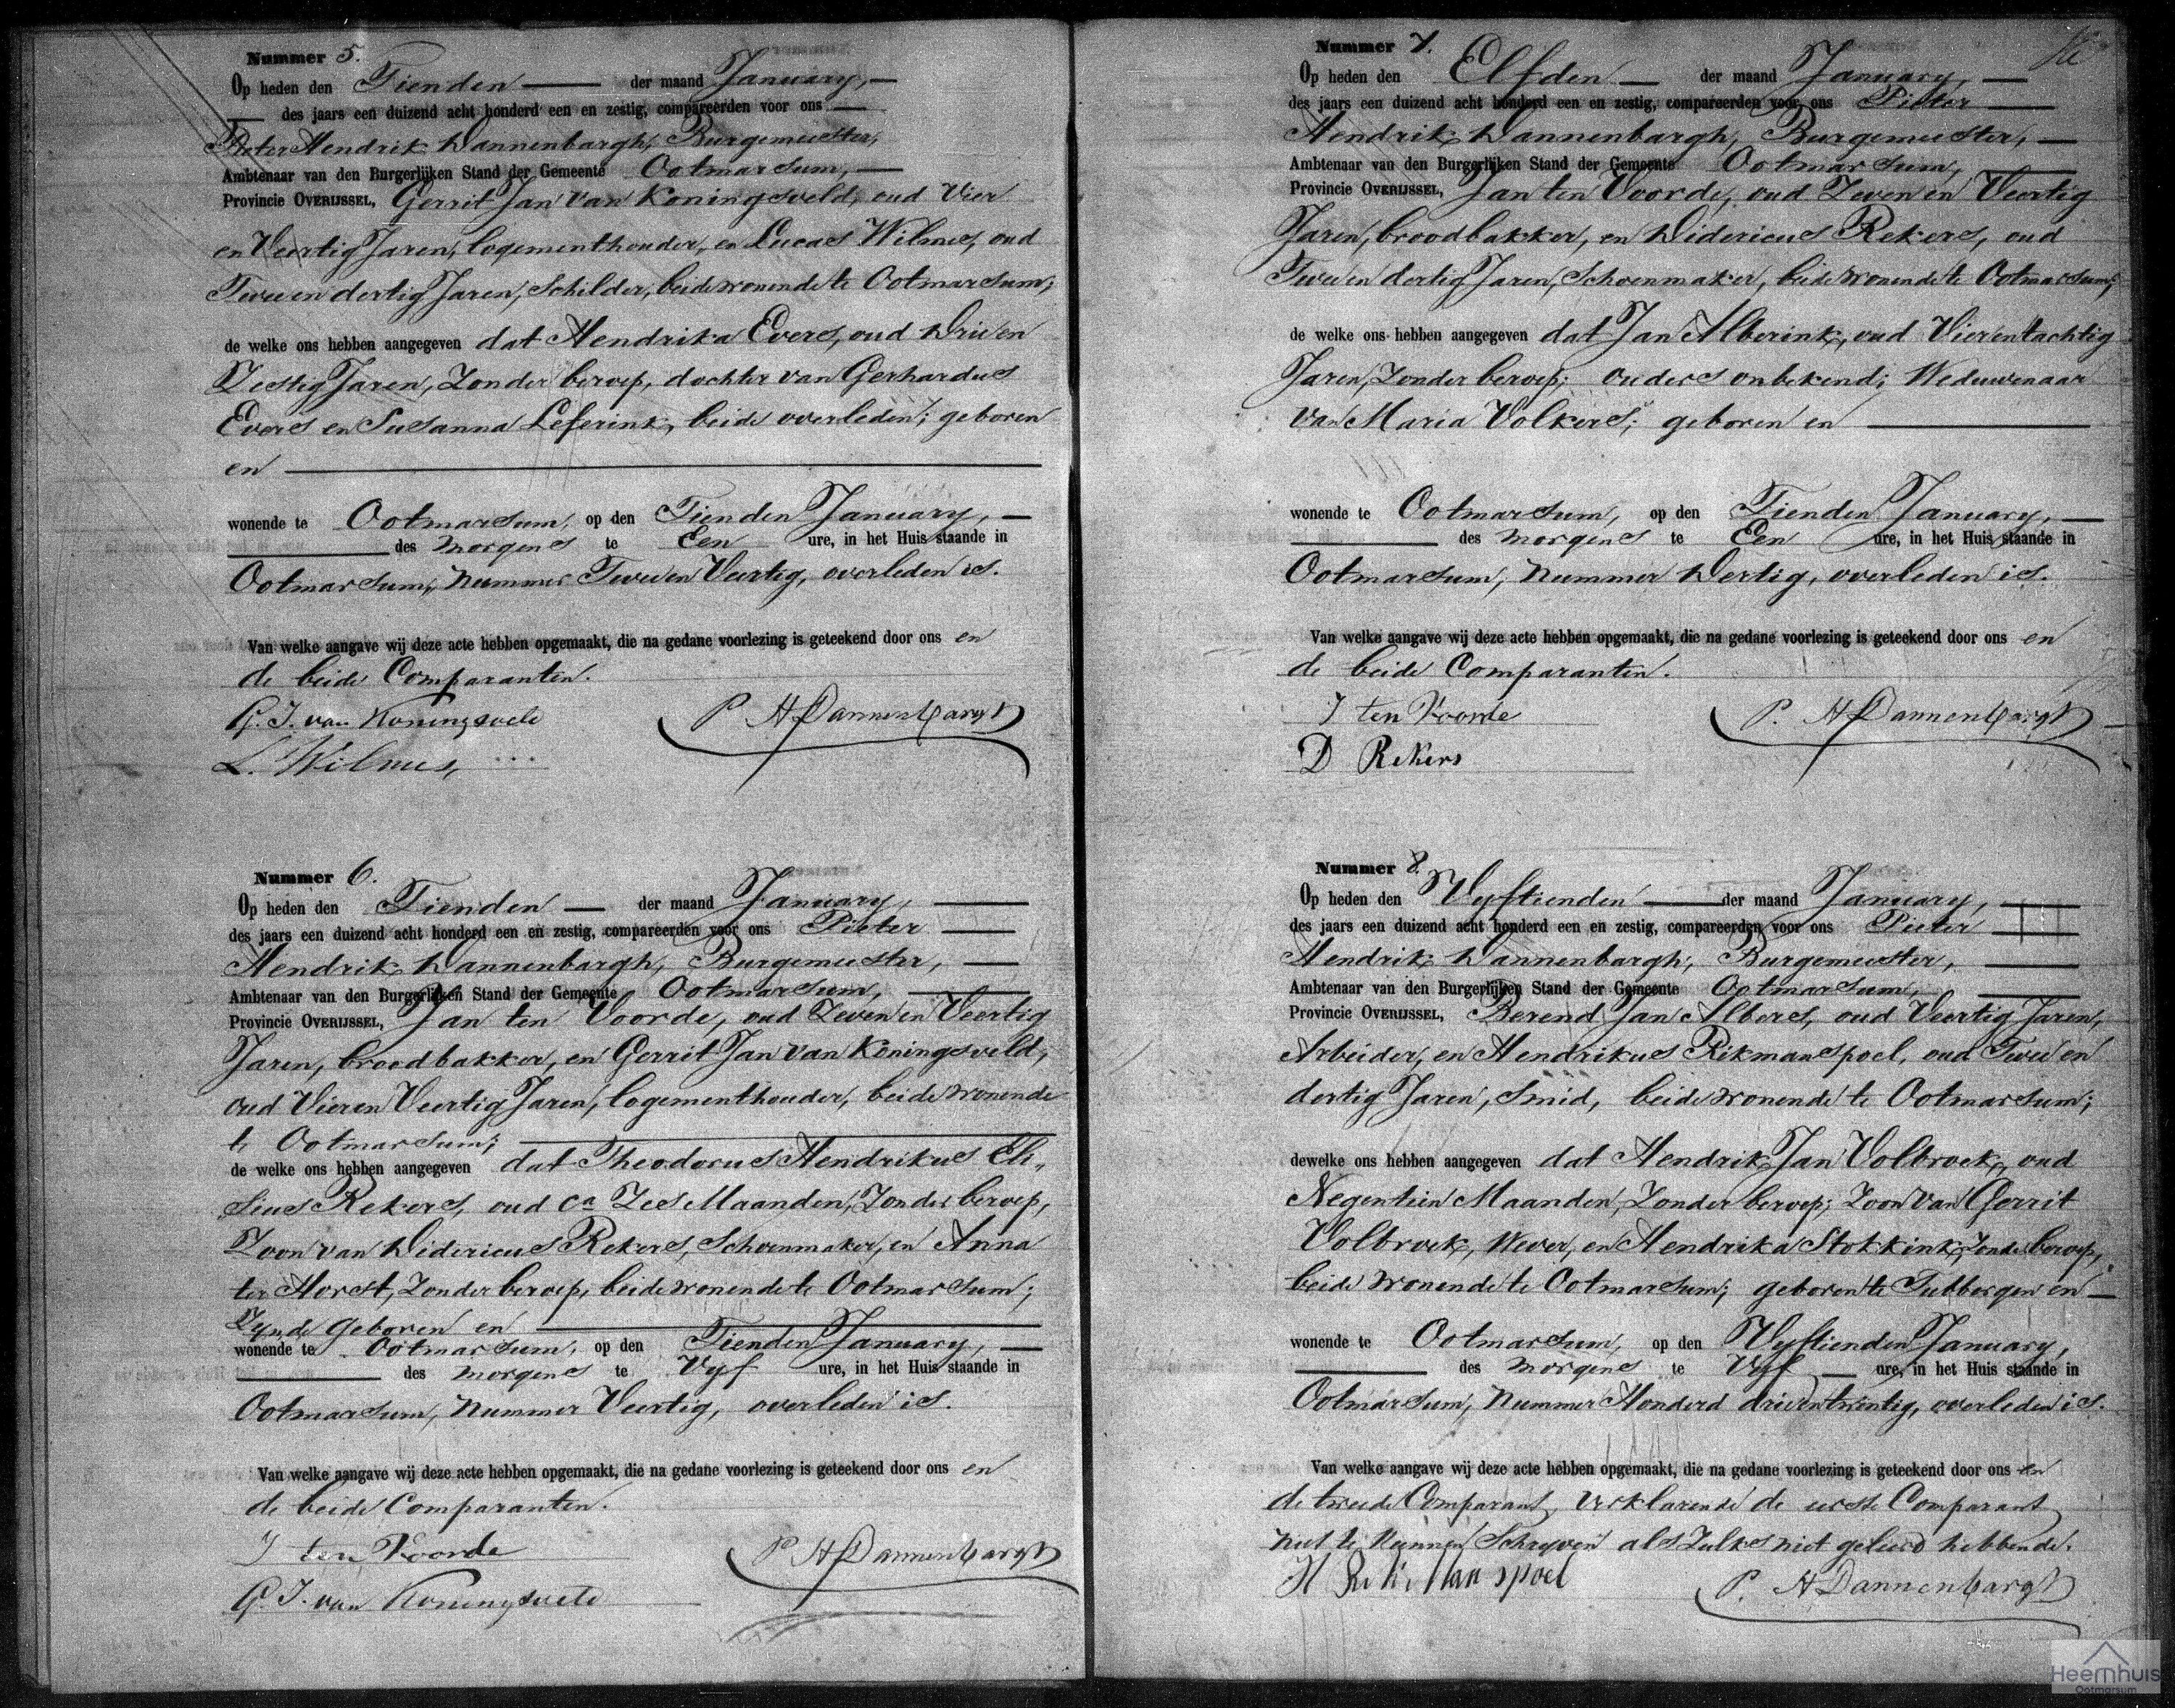 Nummer 5.
Op heden den Tienden der maand January,
des jaars een duizend acht honderd een en zestig, compareerden voor ons
Pieter Hendrik Dannenbargh, Burgemeester,
Ambtenaar van den Burgerlijken Stand der Gemeente Ootmarsum,
Provincie OVERIJSSEL, Gerrit Jan van Koningsveld, oud Vier
en Veertig Jaren, logementhouder, en Lucas Wilmes, oud
Twee en dertig Jaren, Schilder, beide wonende te Ootmarsum;
de welke ons hebben aangegeven dat Hendrika Evers, oud Drie en
Zestig Jaren, Zonder beroep, dochter van Gerhardus
Evers en Susanna Leferink, beide overleden; geboren
en
wonende te Ootmarsum, op den Tienden January,
des morgens te Een ure, in het Huis staande in
Ootmarsum, Nummer Twee en Veertig, overleden is.
Van welke aangave wij deze acte hebben opgemaakt, die na gedane voorlezing is geteekend door ons en
de beide Comparanten.
G. J. van Koningsveld P. H Dannenbargh
L. Wilmes,
Nummer 6.
Op heden den Tienden der maand January,
des jaars een duizend acht honderd een en zestig, compareerden voor ons Pieter
Hendrik Dannenbargh, Burgemeester,
Ambtenaar van den Burgerlijken Stand der Gemeente Ootmarsum,
Provincie OVERIJSSEL, Jan ten Voorde, oud Zeven en Veertig
Jaren, broodbakker, en Gerrit Jan van Koningsveld,
oud Vier en Veertig Jaren, logementhouder, beide wonende
te Ootmarsum;
de welke ons hebben aangegeven dat Theodorus Hendrikus Eli-
sius Rekers, oud ca Zes Maanden, Zonder beroep,
Zoon van Didericus Rekers, Schoenmaker, en Anna
ter Horst, Zonder beroep, beide wonende te Ootmarsum;
Zynde geboren en
wonende te Ootmarsum, op den Tienden January,
des morgens te Vyf ure, in het Huis staande in
Ootmarsum, Nummer Veertig, overleden is.
Van welke aangave wij deze acte hebben opgemaakt, die na gedane voorlezing is geteekend door ons en
de beide Comparanten.
J ten Voorde P H Dannenbargh
G. J. van Koningsveld
Nummer 7.
Op heden den Elfden der maand January,
des jaars een duizend acht honderd een en zestig, compareerden voor ons Pieter
Hendrik Dannenbargh, Burgemeester,
Ambtenaar van den Burgerlijken Stand der Gemeente Ootmarsum,
Provincie OVERIJSSEL, Jan ten Voorde, oud Zeven en Veertig
Jaren, broodbakker, en Didericus Rekers, oud
Twee en dertig Jaren, Schoenmaker, beide wonende te Ootmarsum;
de welke ons hebben aangegeven dat Jan Alberink, oud Vier en tachtig
Jaren, Zonder beroep; ouders onbekend; Weduwenaar
van Maria Volkers; geboren en
wonende te Ootmarsum, op den Tienden January,
des morgens te Een ure, in het Huis staande in
Ootmarsum, Nummer Dertig, overleden is.
Van welke aangave wij deze acte hebben opgemaakt, die na gedane voorlezing is geteekend door ons en
de beide Comparanten.
J ten Voorde P. H Dannenbargh
D Rekers
Nummer 8.
Op heden den Vyftienden der maand January,
des jaars een duizend acht honderd een en zestig, compareerden voor ons Pieter
Hendrik Dannenbargh, Burgemeester,
Ambtenaar van den Burgerlijken Stand der Gemeente Ootmarsum,
Provincie OVERIJSSEL, Berend Jan Albers, oud Veertig Jaren,
Arbeider, en Hendrikus Rikmanspoel, oud Twee en
dertig Jaren, Smid, beide wonende te Ootmarsum;
dewelke ons hebben aangegeven dat Hendrik Jan Volbroek, oud
Negentien Maanden, Zonder beroep; Zoon van Gerrit
Volbroek, Wever, en Hendrika Stokkink, Zonder beroep,
beide wonende te Ootmarsum; geboren te Tubbergen en
wonende te Ootmarsum, op den Vyftienden January,
des morgens te Vyf ure, in het Huis staande in
Ootmarsum, Nummer Honderd drie en twintig, overleden is.
Van welke aangave wij deze acte hebben opgemaakt, die na gedane voorlezing is geteekend door ons en
de tweede Comparant, verklarende de eerste Comparant
niet te kunnen Schryven als Zulks niet geleerd hebbende.
H Rikmanspoel P. H Dannenbargh
Heemhuis
Ootmarsum